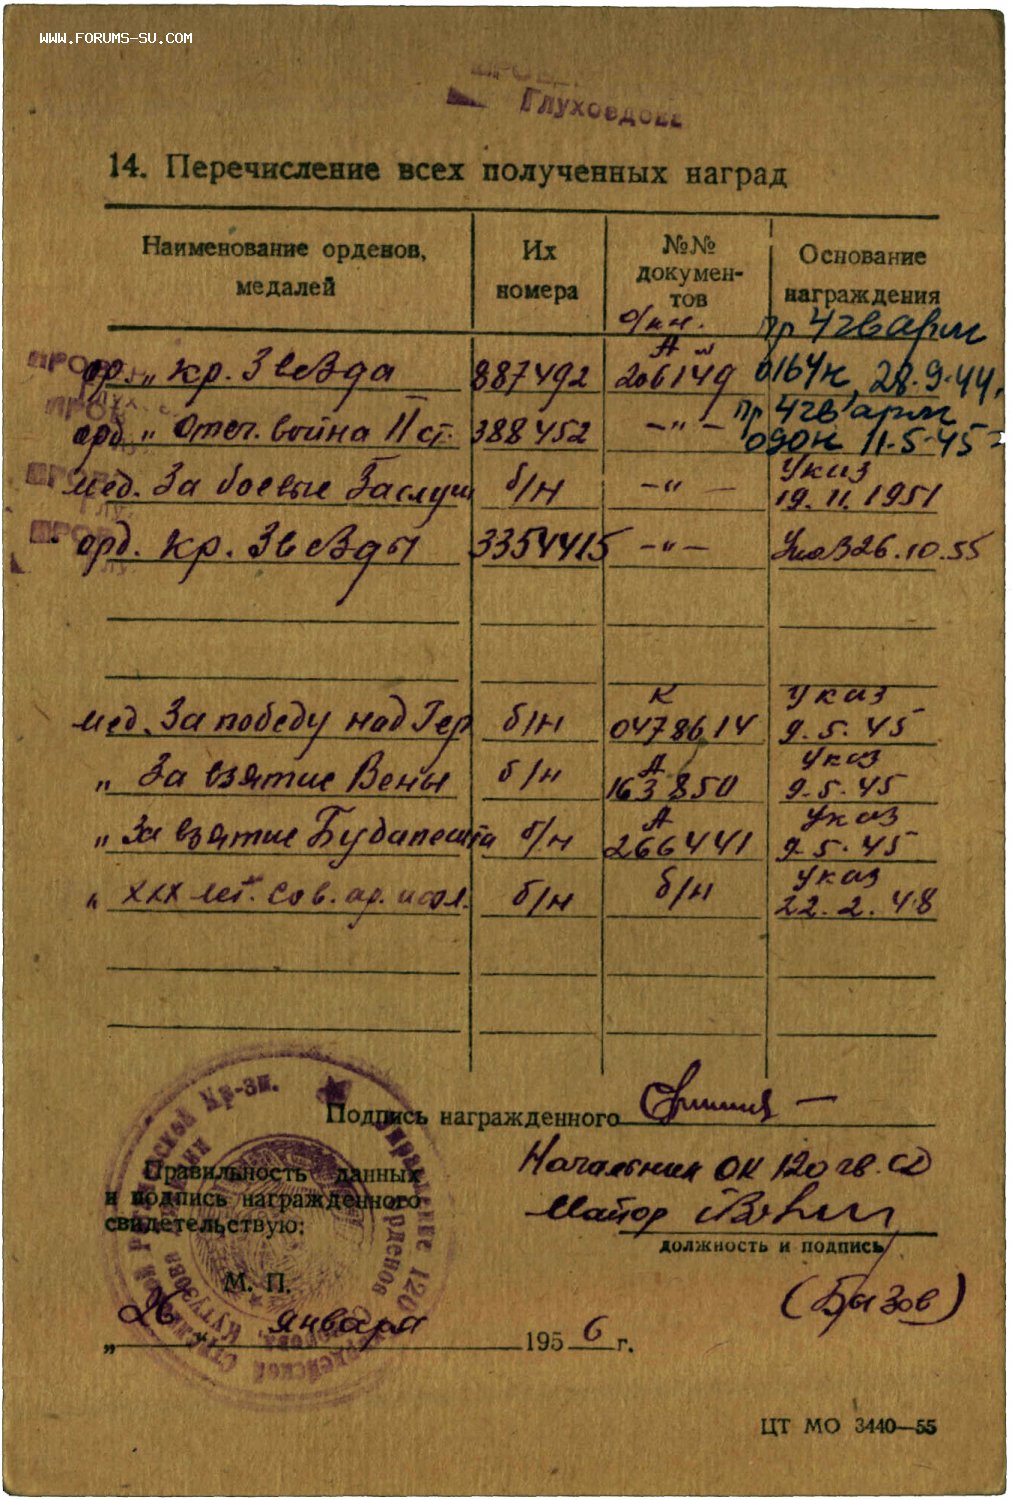 WWW.FORUMS-SU.COM
Глуховдова
14. Перечисление всех полученных наград
Наименование орденов, медалей
Их номера
№№ докумен-тов
Основание награждения
о/кн.
пр 4 гв арм
ор. „ кр. Звезда 887492 А № 206149 0164н 28.9.44.
орд. „ Отеч. война II ст. 388452 —"— пр 4 гв арм 090н 11.5.45
мед. За боевые Заслуги б/н —"— Указ 19.11.1951
орд. кр. Звезды 3354415 —"— Указ 26.10.55
мед. За победу над Гер б/н К 0478614 Указ 9.5.45
„ За взятие Вены б/н А 163850 Указ 9.5.45
„ За взятие Будапешта б/н А 266441 Указ 9.5.45
„ XXX лет. Сов. ар. и фл. б/н б/н Указ 22.2.48
Подпись награжденного
Правильность данных
и подпись награжденного
свидетельствую:
Начальник ОК 120 гв. СД
Майор
должность и подпись
М. П.
(Бызов)
„ 26 „ января 1956 г.
ЦТ МО 3440—55